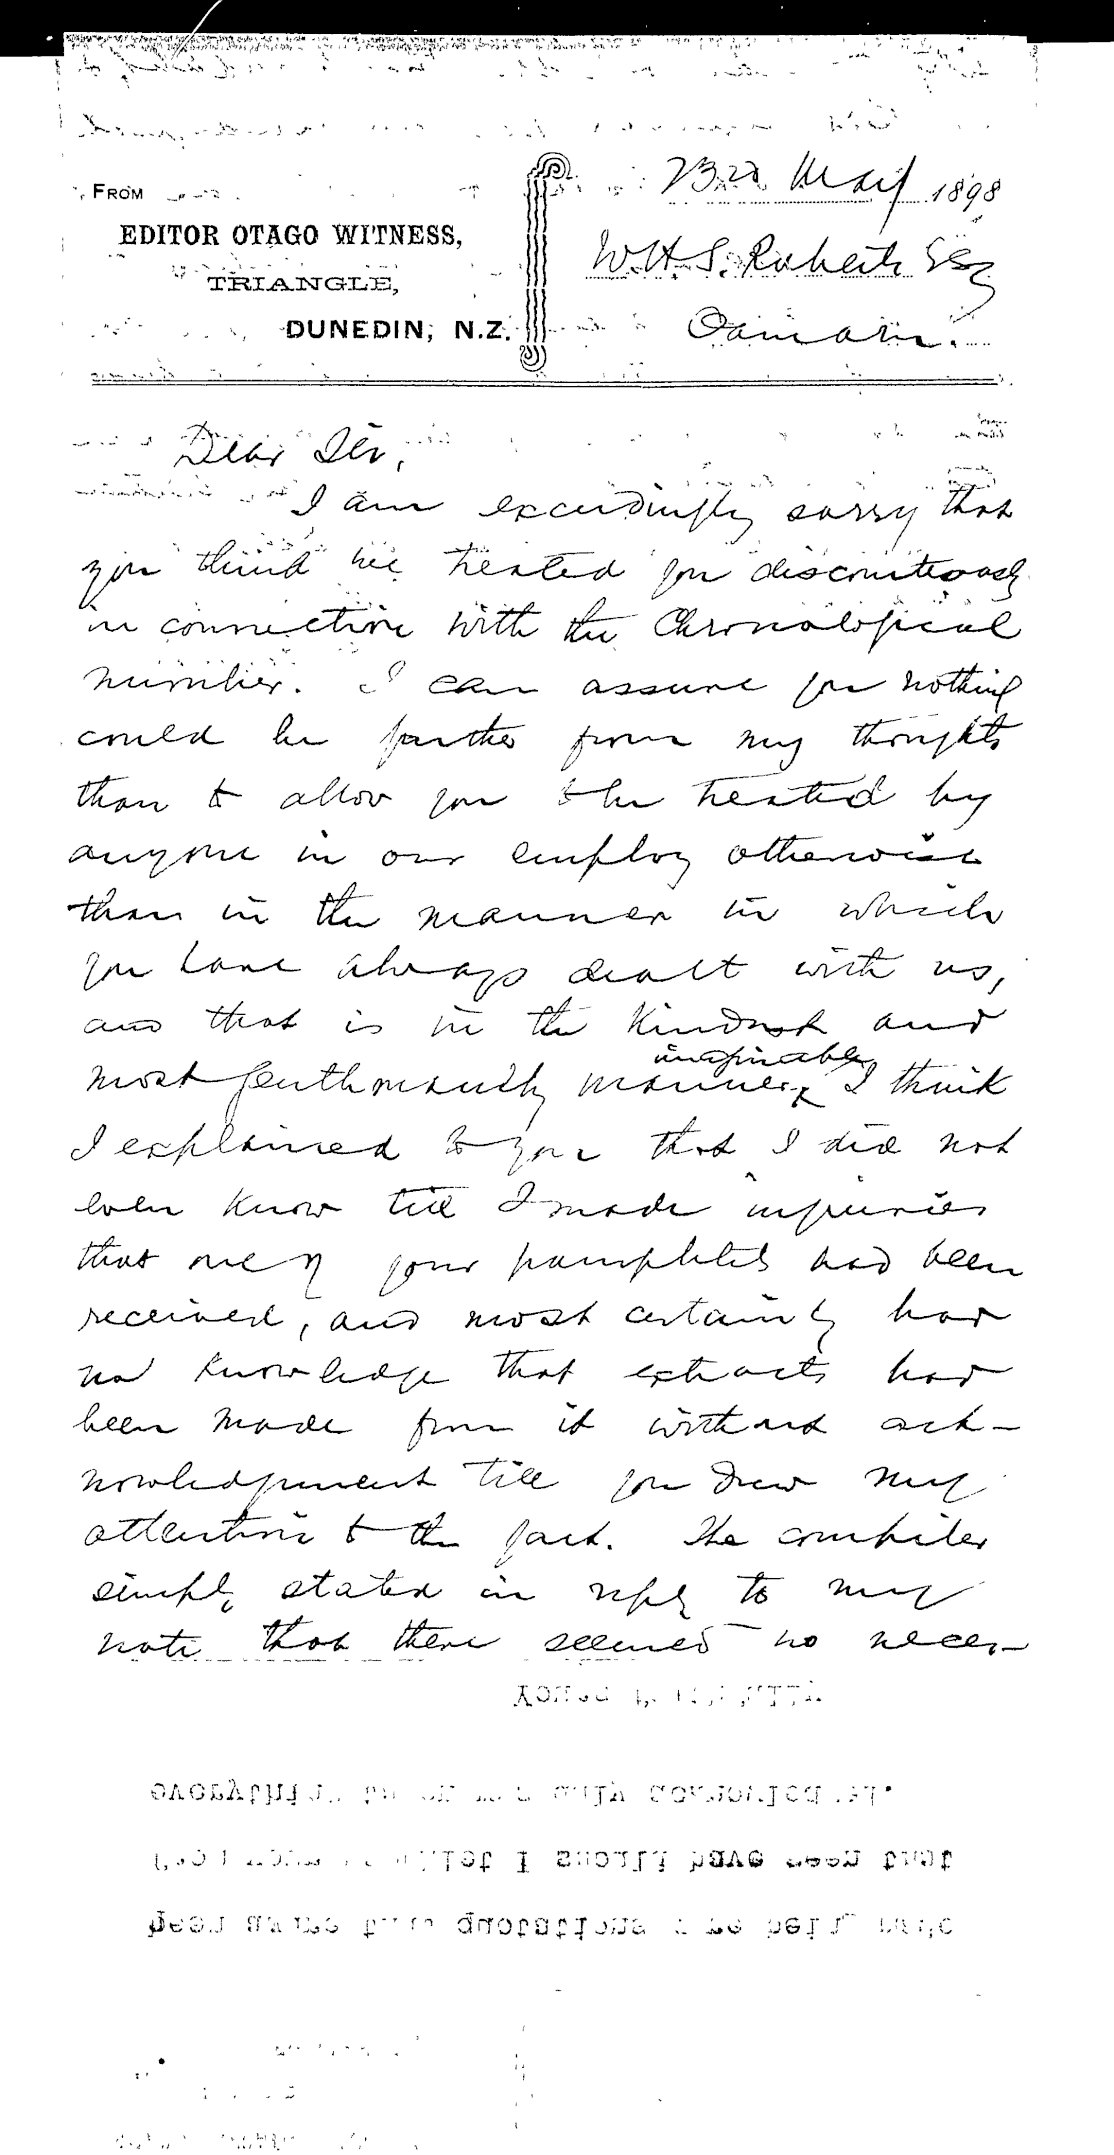 FROM
EDITOR OTAGO WITNESS,
TRIANGLE,
DUNEDIN, N.Z.
23rd May 1898
W.H.S. Roberts Esq
Oamaru.
Dear Sir,
I am exceedingly sorry that
you think we treated you discourteously
in connection with the Chronological
number. I can assure you nothing
could be further from my thoughts
than to allow you to be treated by
anyone in our employ otherwise
than in the manner in which
you have always dealt with us,
and that is in the kindest and
most gentlemanly imaginable manner. I think
I explained to you that I did not
even know till I made inquiries
that one of your pamphlets had been
received, and most certainly had
no knowledge that extracts had
been made from it without ack-
nowledgment till you drew my
attention to the fact. The compiler
simply stated in reply to my
note that there seemed no neces-